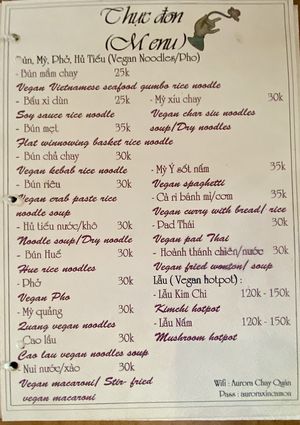 Thực đơn
(Menu)
Bún, Mỳ, Phở, Hủ Tiếu (Vegan Noodles/Pho)
- Bún mắm chay 25k
Vegan Vietnamese seafood gumbo rice noodle
- Bấu xì dùn 25k
Soy sauce rice noodle
- Bún mẹt 35k
Flat winnowing basket rice noodle
- Bún chả chay 30k
Vegan kebab rice noodle
- Bún riêu 30k
Vegan crab paste rice
noodle soup
- Hủ tiếu nước/khô 30k
Noodle soup/Dry noodle
- Bún Huế 30k
Hue rice noodles
- Phở 30k
Vegan Pho
- Mỳ quảng 30k
Quang vegan noodles
- Cao lầu 30k
Cao lau vegan noodles soup
- Nui nước/xào 30k
Vegan macaroni/ Stir- fried
vegan macaroni
- Mỳ xíu chay 30k
Vegan char siu noodles
soup/Dry noodles
- Mỳ Ý sốt nấm 35k
Vegan spaghetti
- Cà ri bánh mì/cơm 35k
Vegan curry with bread/ rice
- Pad Thái 30k
Vegan pad Thai
- Hoành thánh chiên/nước 30k
Vegan fried wonton/ soup
Lẩu ( Vegan hotpot) :
- Lẩu Kim Chi 120k - 150k
Kimchi hotpot
- Lẩu Nấm 120k - 150k
Mushroom hotpot
Wifi : Aurora Chay Quán
Pass :